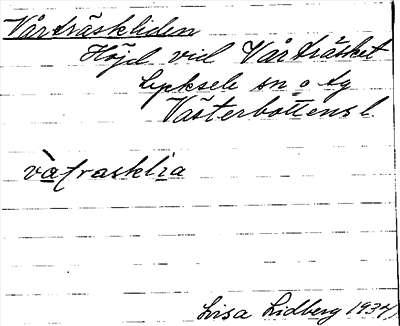 Vårträskliden
Höjd vid Vårträsket
Lycksele sn o tg
Västerbottens l.
våtrasklia
Lisa Lidberg 1934